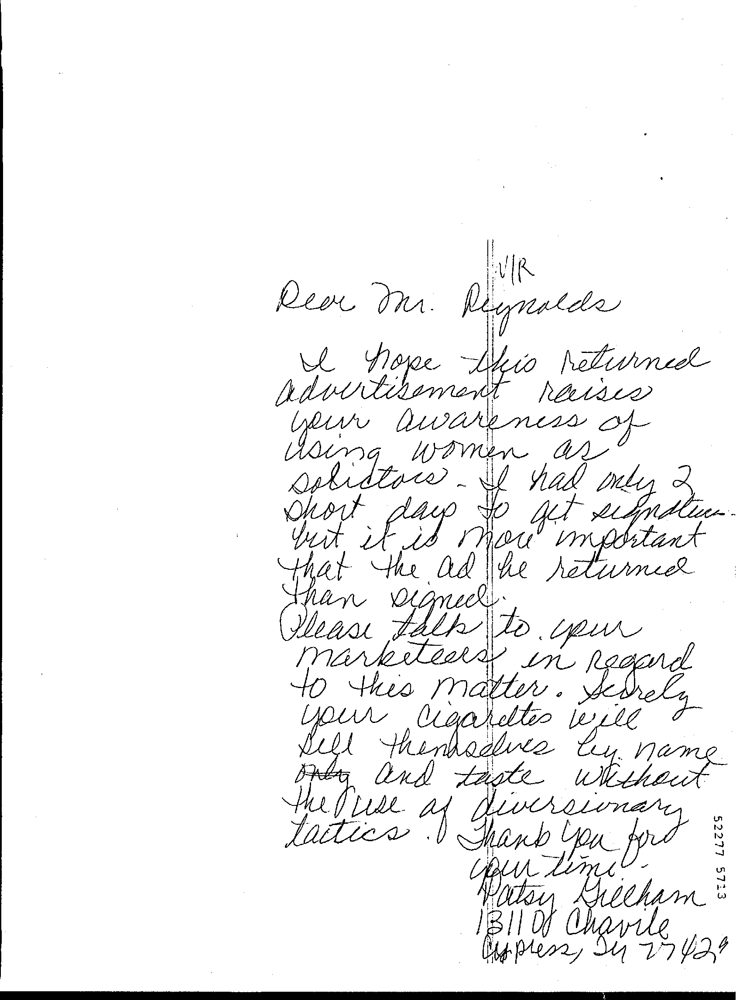 V/R
Dear Mr. Reynolds
I hope this returned
advertisement raises
your awareness of
using women as
solictors - I had only 2
short days to get signatures
but it is more important
that the ad be returned
than signed.
Please talk to your
marketeers in regard
to this matter. Surely
your cigarettes will
sell themselves by name
only and taste without
the use of diversionary
tactics. Thank you for
your time.
Patsy Gillham
Cypress, 
52277 5713